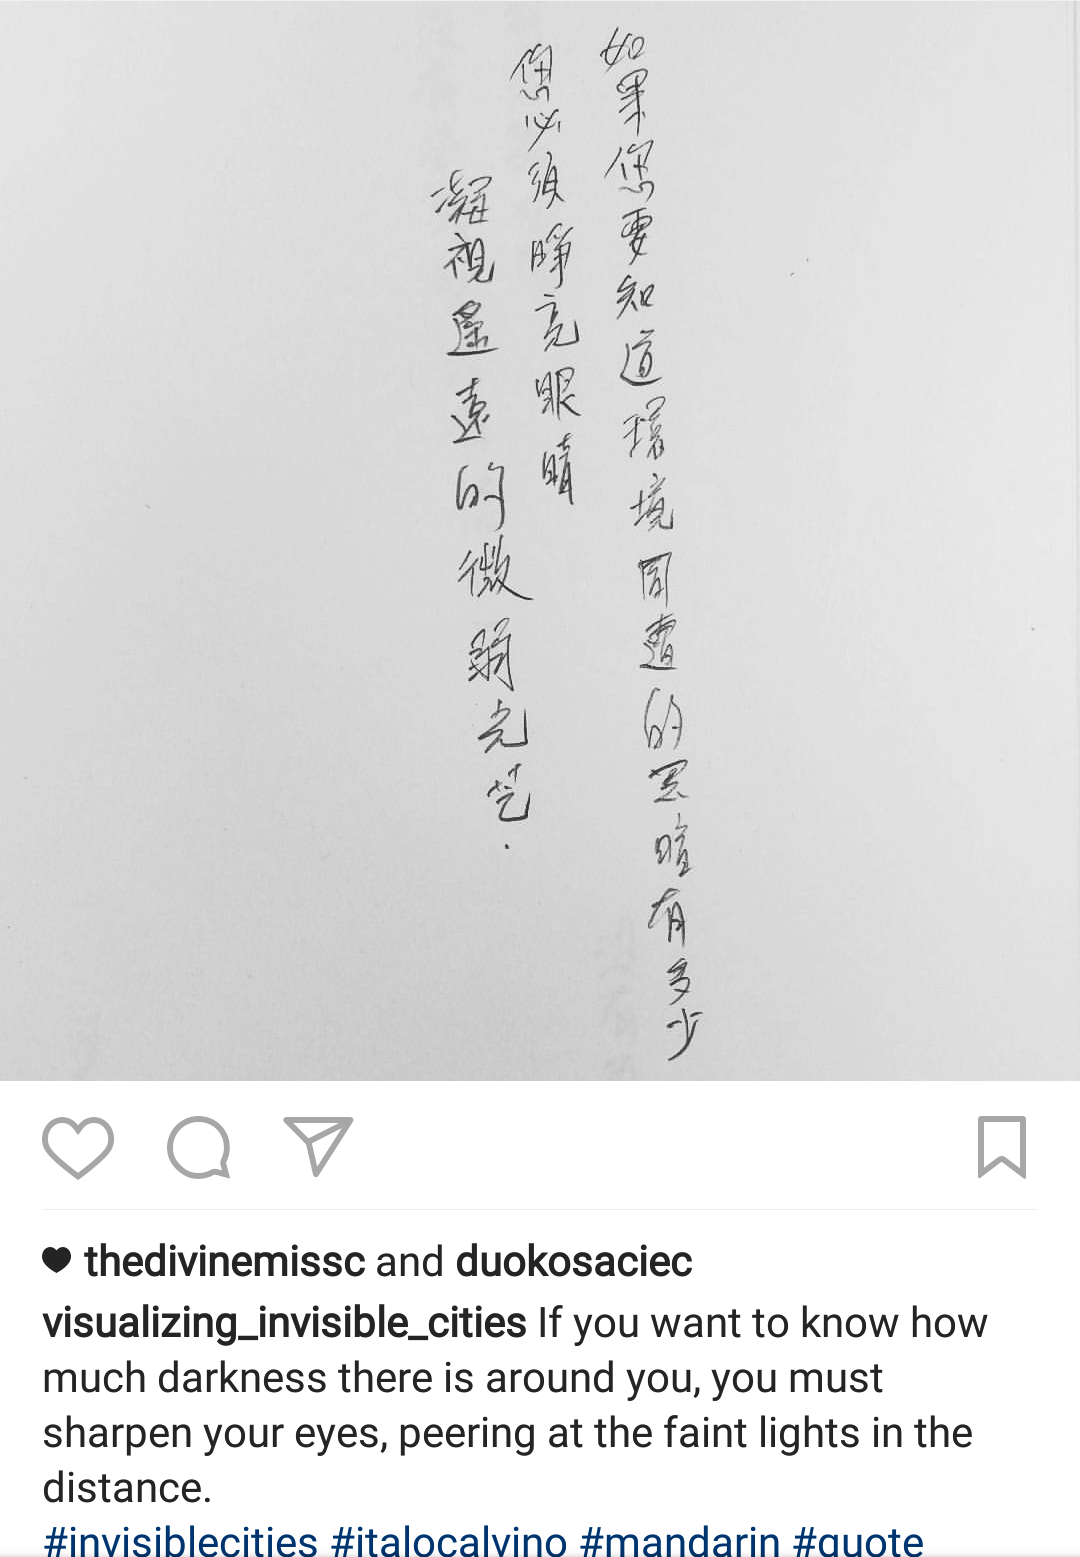 如果您要知道環境周遭的黑暗有多少
您必須睜亮眼睛
凝視遙遠的微弱光芒.
thedivinemissc and duokosaciec
visualizing_invisible_cities If you want to know how
much darkness there is around you, you must
sharpen your eyes, peering at the faint lights in the
distance.
#invisiblecities #italocalvino #mandarin #quote